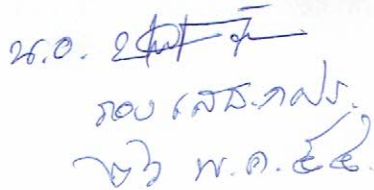 น.อ.
รอง เสธ.กฝร.
๒๖ พ.ค. ๕๕